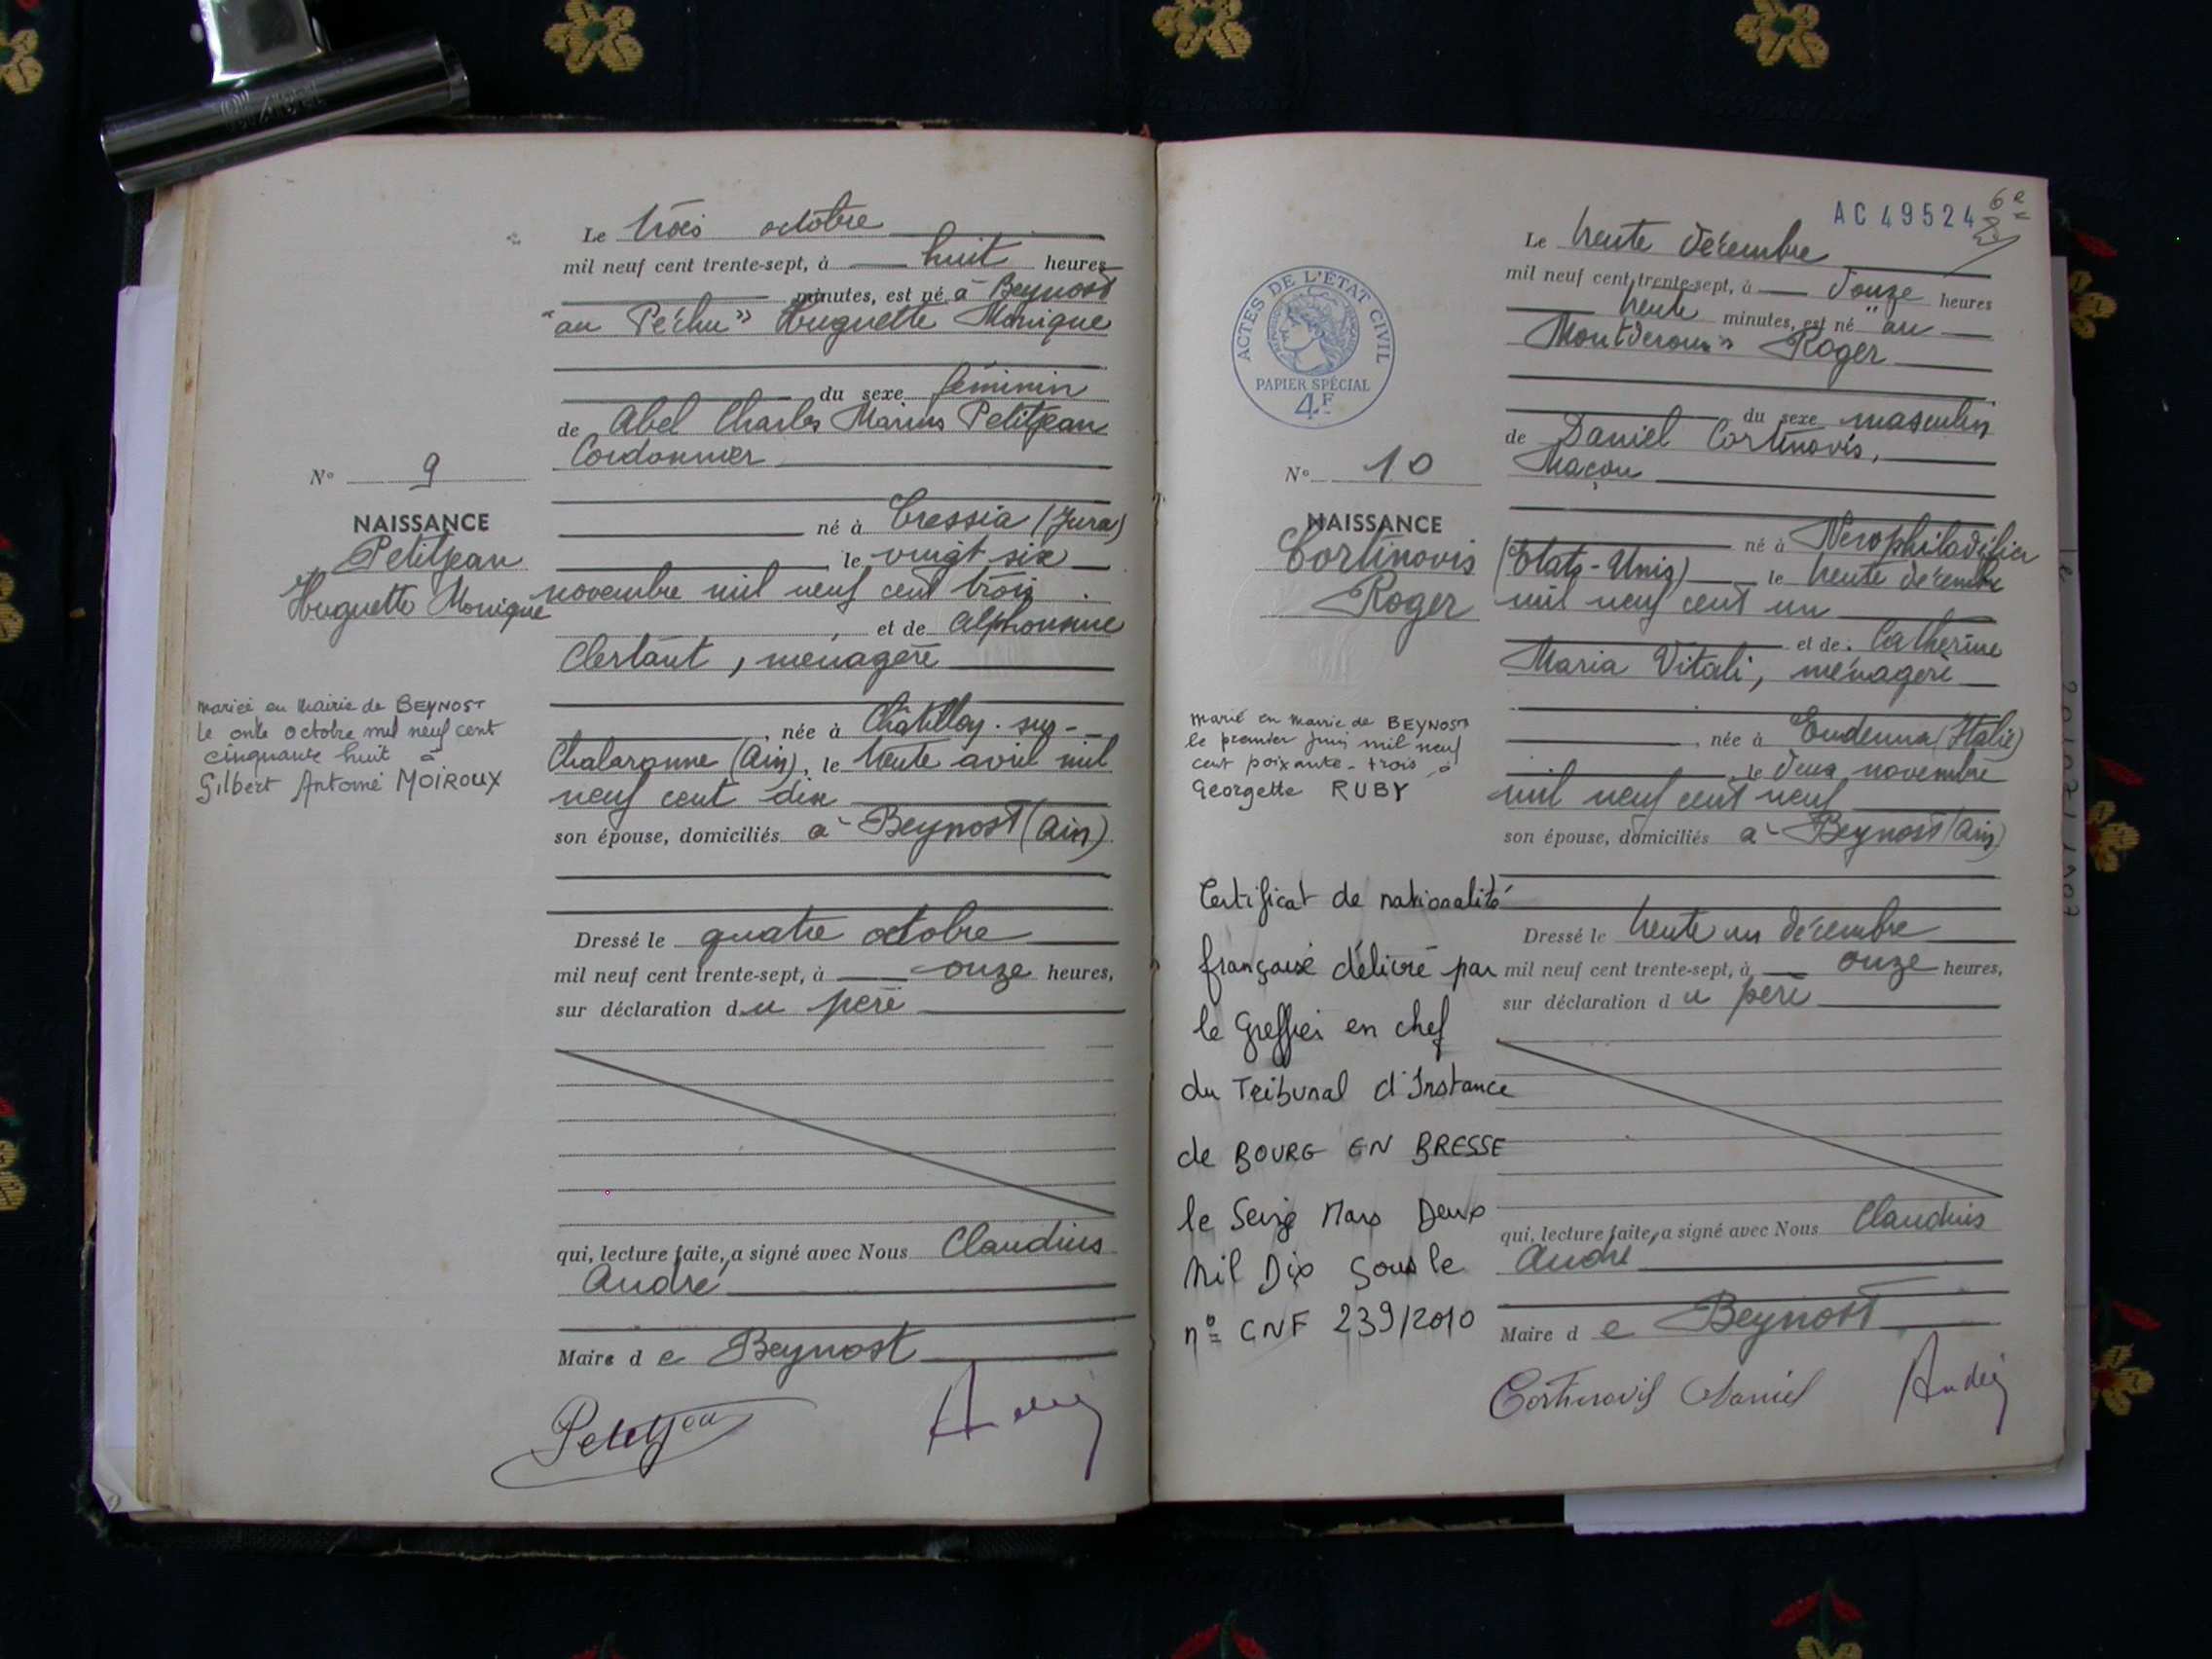 Le trois octobre
mil neuf cent trente-sept, à huit heures
minutes, est né à Beynost
"au Péchu" Huguette Monique
du sexe féminin
de Abel Charles Marius Petitjean
Cordonnier
né à Cressia (Jura)
le vingt six
novembre mil neuf cent trois
et de Alphonsine
Clertant, ménagère
née à Châtillon-sur-
Chalaronne (Ain), le trente avril mil
neuf cent dix
son épouse, domiciliés à Beynost (Ain)
Dressé le quatre octobre
mil neuf cent trente-sept, à onze heures,
sur déclaration du père
qui, lecture faite, a signé avec Nous Claudius
André
Maire de Beynost
Petitjean
André
N° 9
NAISSANCE
Petitjean
Huguette Monique
mariée en Mairie de BEYNOST
le onze octobre mil neuf cent
cinquante huit à
Gilbert Antoine MOIROUX
AC 49524
Le trente décembre
mil neuf cent trente-sept, à douze heures
trente minutes, est né "au
Roger
du sexe masculin
de Daniel Cortinovis,
Maçon
né à
(Etats-Unis) le trente décembre
mil neuf cent un
et de Catherine
Maria Vitali, ménagère
née à Endenna (Italie)
le deux novembre
mil neuf cent neuf
son épouse, domiciliés à Beynost (Ain)
Dressé le trente un décembre
mil neuf cent trente-sept, à onze heures,
sur déclaration du père
qui, lecture faite, a signé avec Nous Claudius
André
Maire de Beynost
Cortinovis Daniel
André
ACTES DE L'ÉTAT CIVIL
PAPIER SPÉCIAL
4F
N° 10
NAISSANCE
Cortinovis
Roger
marié en Mairie de BEYNOST
le premier juin mil neuf
cent soixante-trois à
Georgette RUBY
Certificat de nationalité
française délivré par
le Greffier en chef
du Tribunal d'Instance
de BOURG EN BRESSE
le Seize Mars Deux
Mil Dix sous le
n° CNF 239/2010